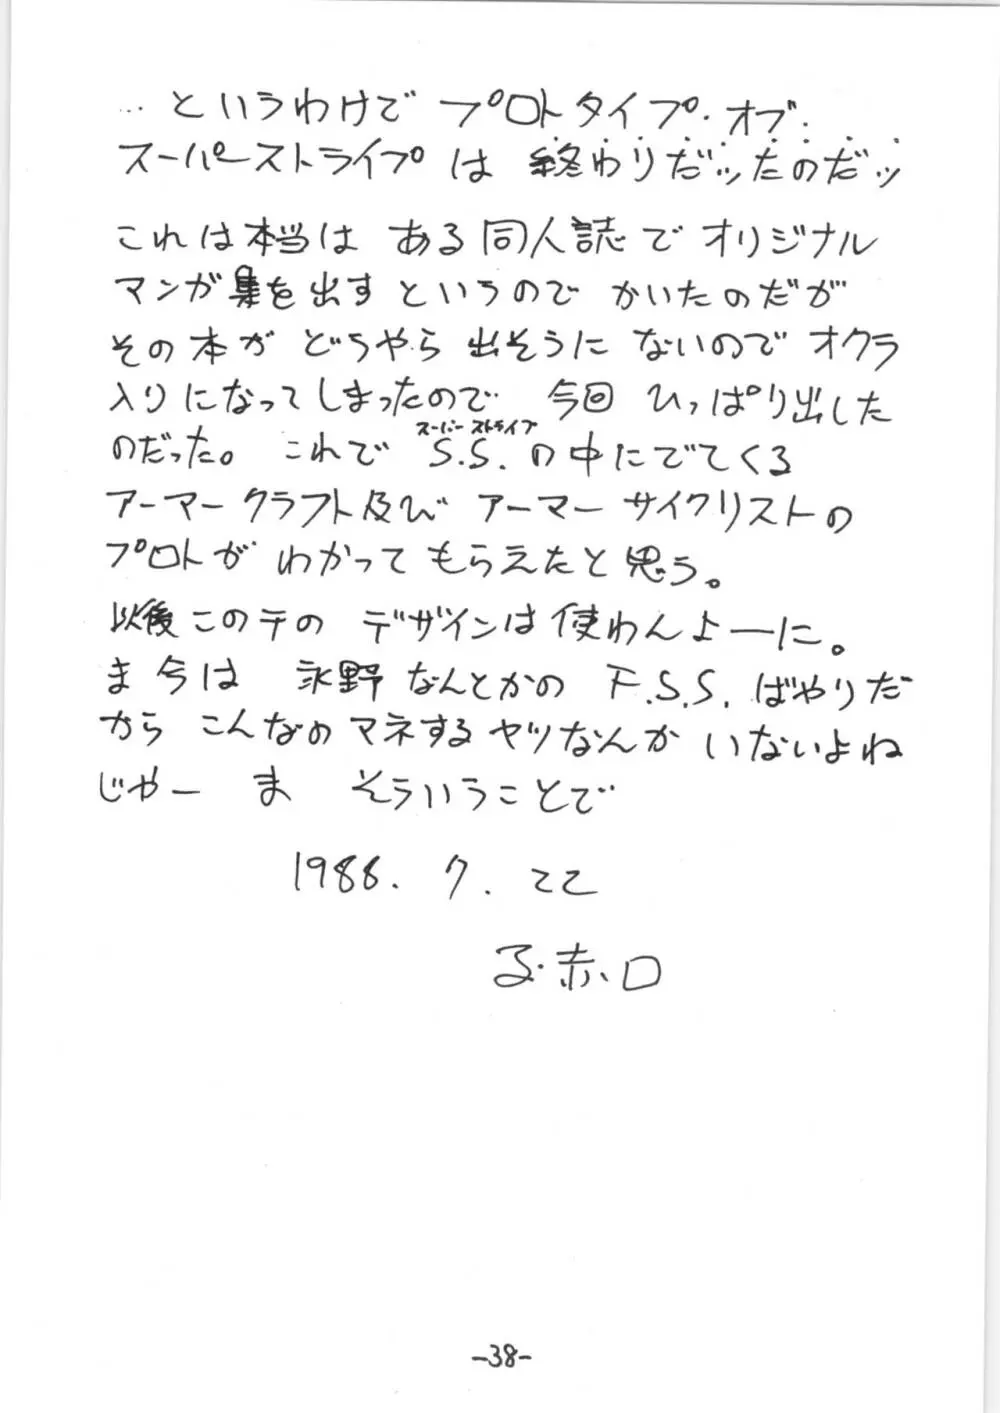 …というわけで プロトタイプ・オブ・
スーパーストライプ は 終わりだッたのだッ
これは本当は ある同人誌で オリジナル
マンガ集を出す というので かいたのだが
その本が どうやら 出そうに ないので オクラ
入りになってしまったので 今回 ひっぱり出した
スーパー ストライプ
のだった。 これで S.S. の中にでてくる
アーマークラフト及び アーマーサイクリストの
プロトが わかって もらえたと思う。
以後このテの デザインは使わんよーに。
ま 今は 永野なんとかの F.S.S. ばやりだ
から こんなのマネするヤツなんか いないよね
じゃー ま そういうことで
1988. 7. 22
る・赤、ロ
-38-